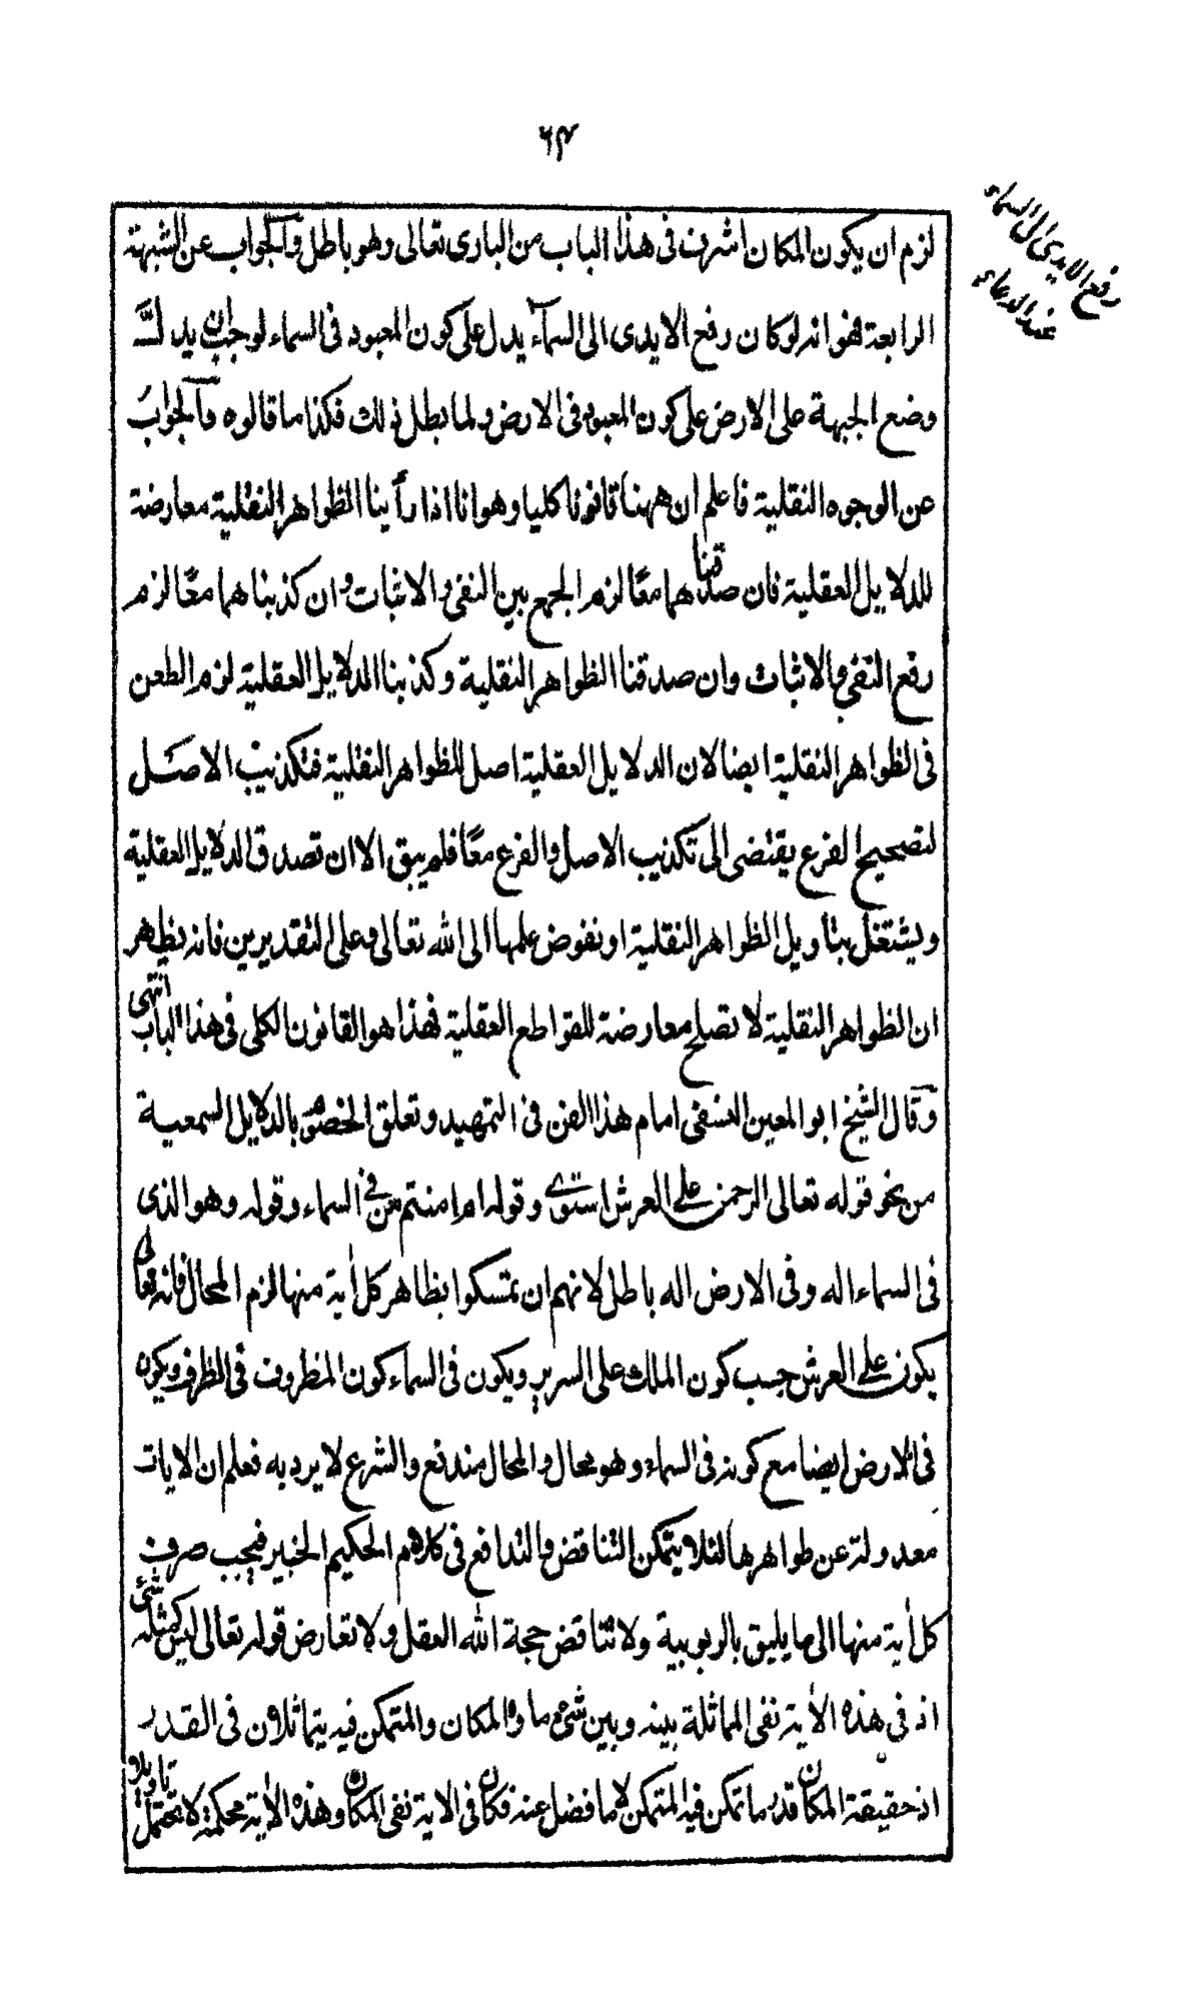 ٦٣
رفع الايدى الى السماء
عند الدعاء
لزم ان يكون المكان اشرف فى هذا الباب من البارى تعالى وهو باطل والجواب عن الشبهة
الرابعة فهو انه لو كان رفع الايدى الى السمآء يدل على كون المعبود فى السماء لوجب ان يدل
وضع الجبهة على الارض على كون المعبود فى الارض ولما بطل ذلك فكذا ما قالوه والجواب
عن الوجوه النقلية فاعلم ان ههنا قانونا كليا وهو انا اذا رأينا الظواهر النقلية معارضة
للدلايل العقلية فان صدقناهما معًا لزم الجمع بين النفى والاثبات وان كذبناهما معًا لزم
رفع النفى والاثبات وان صدقنا الظواهر النقلية وكذبنا الدلايل العقلية لزم الطعن
فى الظواهر النقلية ايضا لان الدلايل العقلية اصل للظواهر النقلية فتكذيب الاصل
لتصحيح الفرع يقتضى الى تكذيب الاصل والفرع معًا فلم يبق الا ان تصدق الدلايل العقلية
ويشتغل بتأويل الظواهر النقلية او نفوض علمها الى الله تعالى وعلى التقديرين فانه يظهر
ان الظواهر النقلية لا تصلح معارضة للقواطع العقلية فهذا هو القانون الكلى فى هذا الباب انتهى
وقال الشيخ ابو المعين النسفى امام هذا الفن فى التمهيد وتعلق الخصوم بالدلايل السمعية
من نحو قوله تعالى الرحمن على العرش استوى وقوله ام امنتم من فى السماء وقوله وهو الذى
فى السماء اله وفى الارض اله باطل لانهم ان تمسكوا بظاهر كل أية منها لزم المحال فانه تعالى
يكون على العرش حسب كون الملك على السرير ويكون فى السماء كون المظروف فى الظرف ويكون
فى الارض ايضا مع كونه فى السماء وهو محال والمحال مندفع والشرع لا يرد به فعلم ان الايات
معدولة عن ظواهرها لئلا يتمكن التناقض والتدافع فى كلام الحكيم الخبير فيجب صرف
كل أية منها الى ما يليق بالربوبية ولا تتناقض حجة الله العقل ولا تعارض قوله تعالى ليس كمثله شئ
اذ فى هذه الأية نفى المماثلة بينه وبين شئ ما والمكان والمتمكن فيه يتماثلان فى القدر
اذ حقيقة المكان قدر ما تمكن فيه المتمكن لا ما فضل عنه فكان فى الاية نفى المكان وهذه الأية محكمة لا تحتمل تاويلا